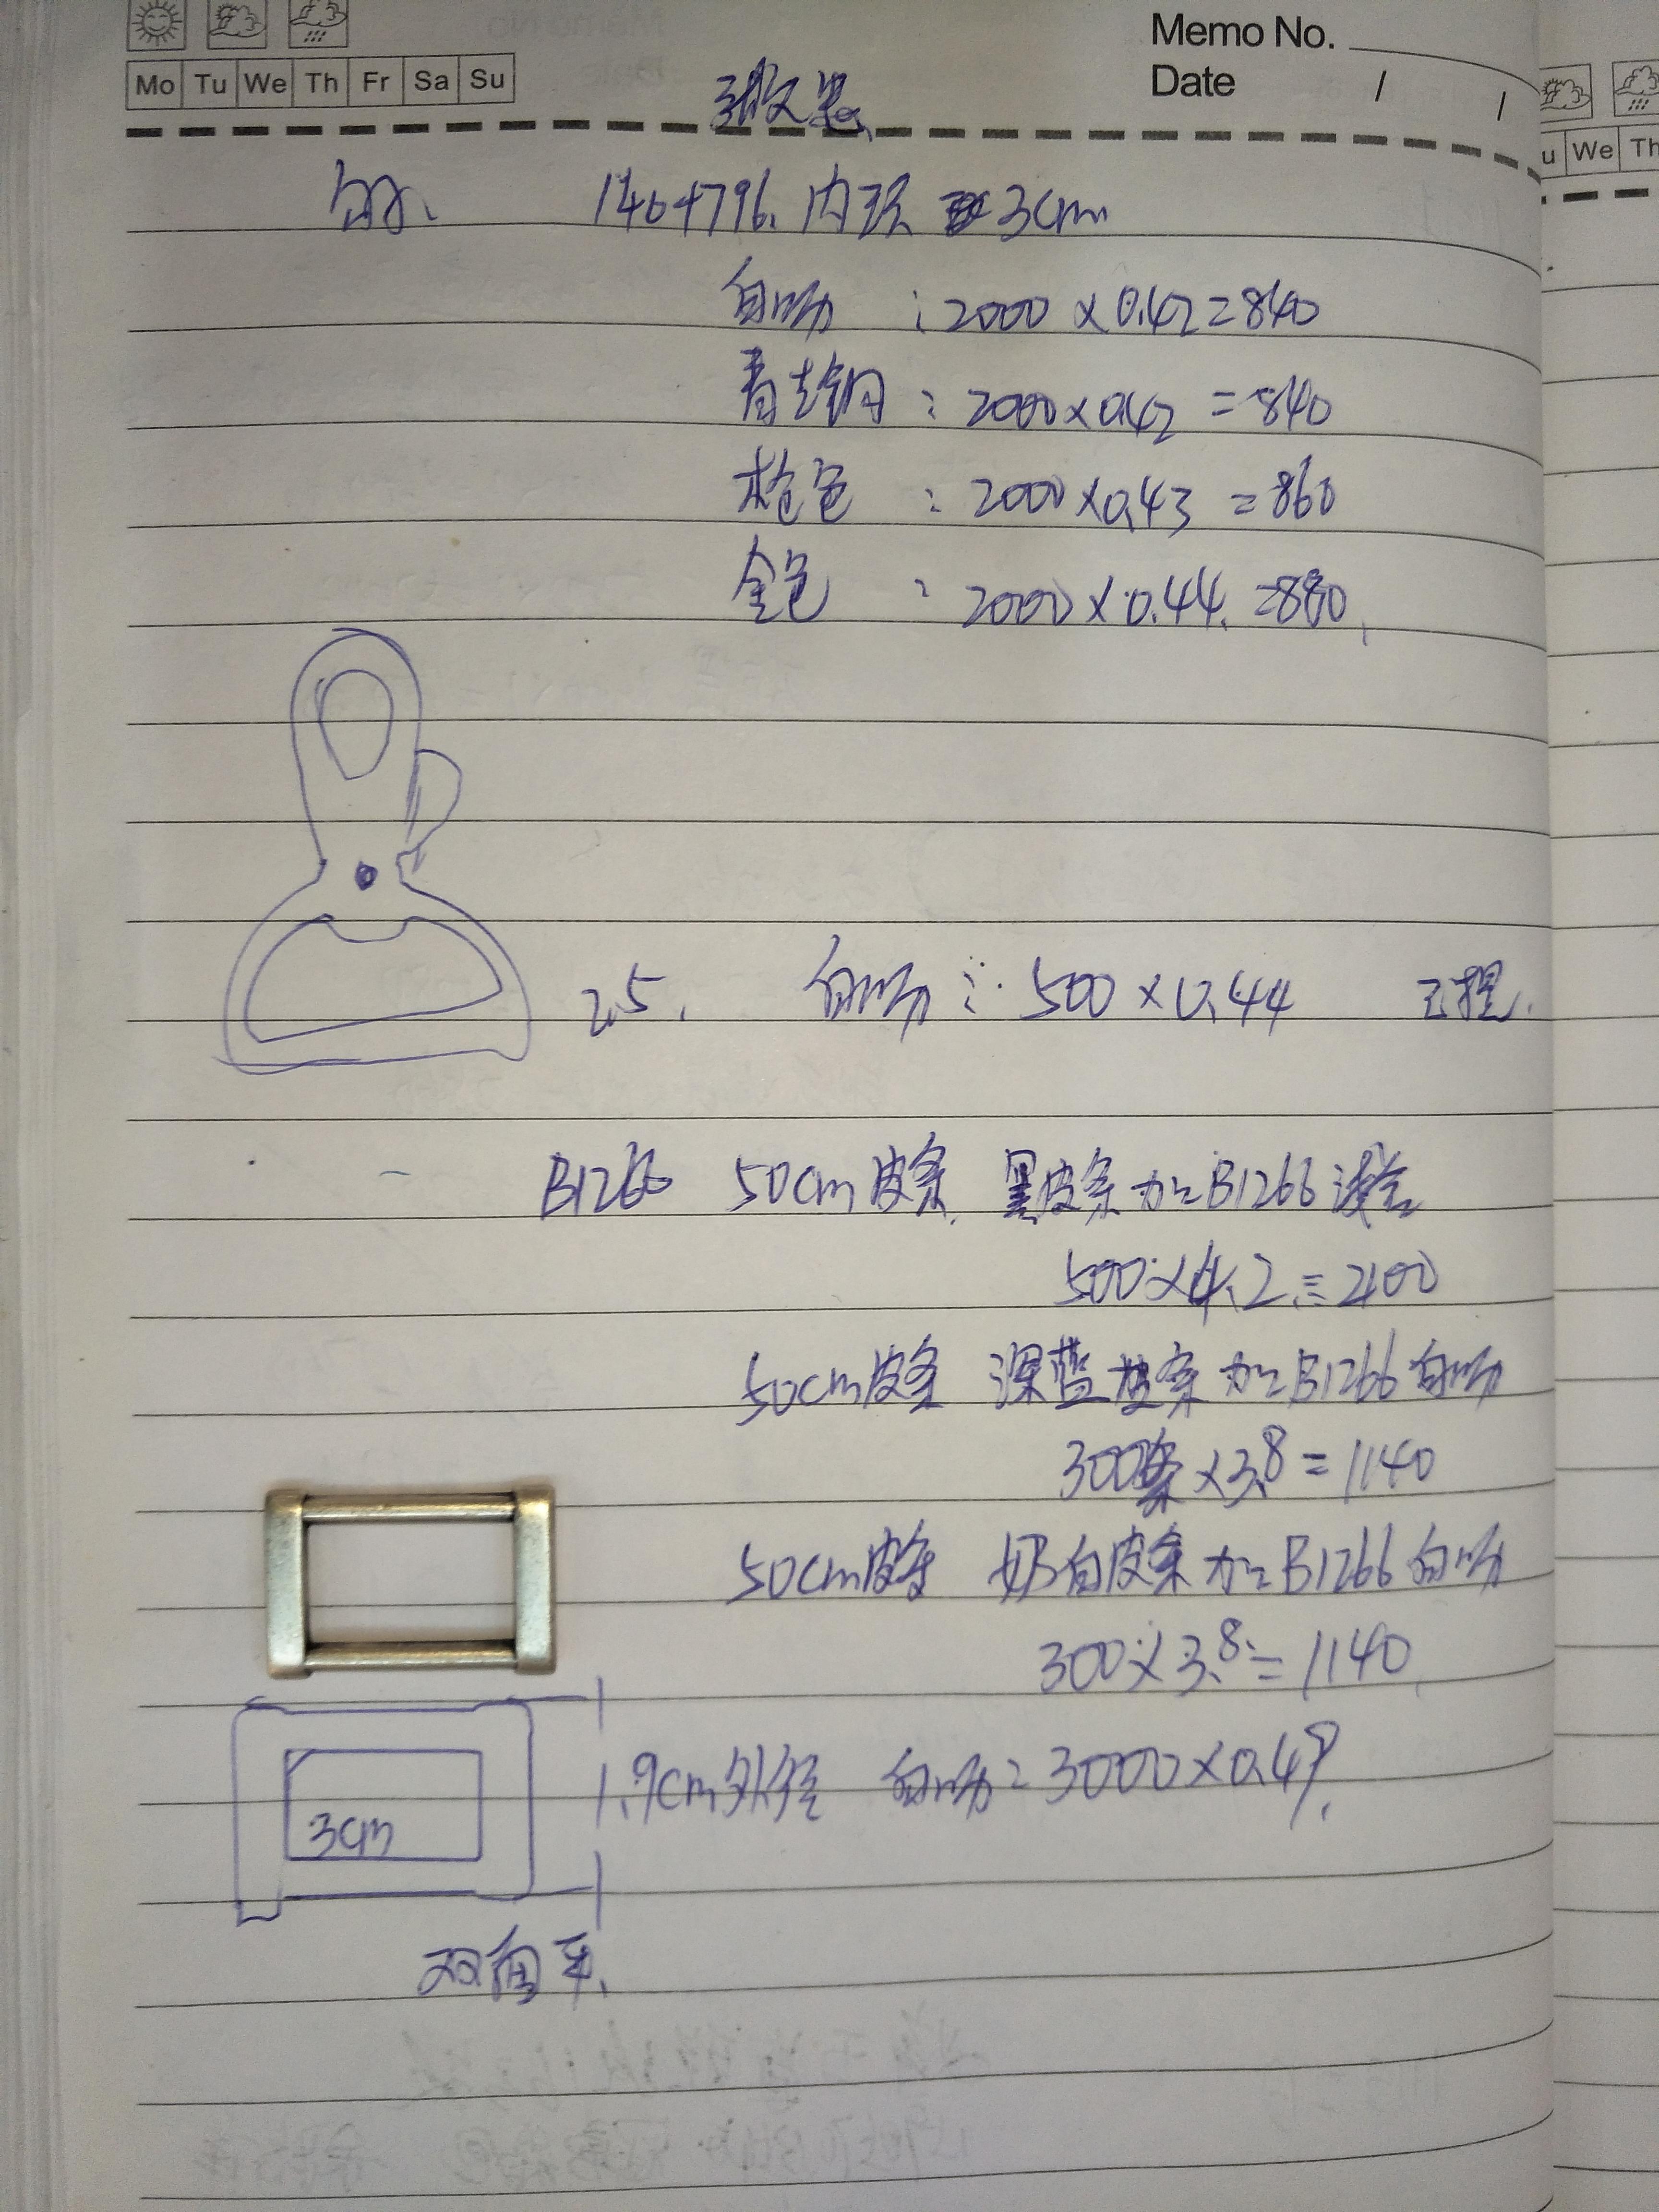 Memo No.
Mo Tu We Th Fr Sa Su
Date / /
u We Th
1404796. 内径 3cm
白叻 : 2000 × 0.42 = 840
青古铜 : 2000 × 0.42 = 840
枪色 : 2000 × 0.43 = 860
金色 : 2000 × 0.44. = 880
2.5. 白叻 : 500 × 0.44 已提.
B1266 50cm皮条. 黑皮条加B1266浅金
500 × 4.2 = 2100
50cm皮条 深蓝皮条加B1266白叻
300条 × 3.8 = 1140
50cm皮条 奶白皮条加B1266白叻
300 × 3.8 = 1140
1.9cm外径 白叻 : 3000 × 0.49.
3cm
双面平.